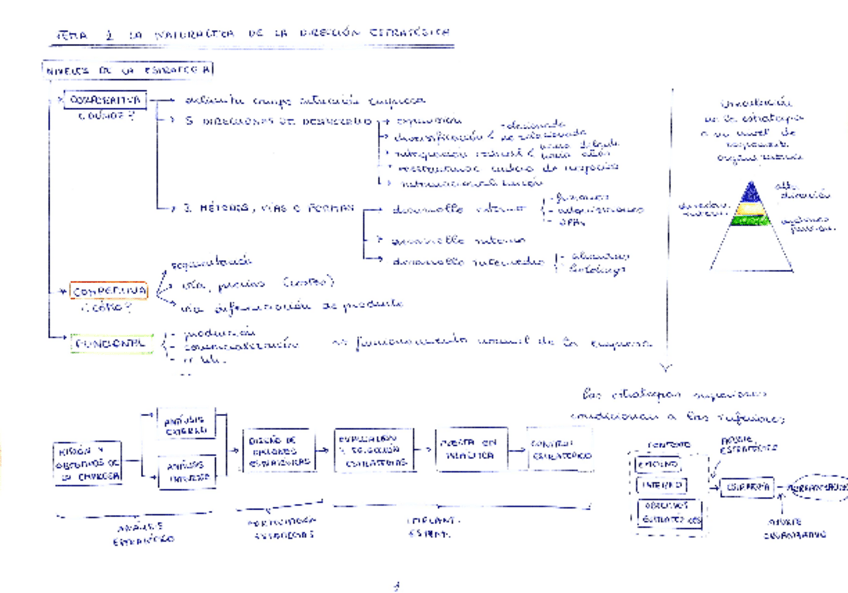 TEMA 1 LA NATURALEZA DE LA DIRECCIÓN ESTRATÉGICA
NIVELES DE LA ESTRATEGIA
CORPORATIVA
¿DÓNDE?
delimita campo actuación empresa
5 DIRECCIONES DE DESARROLLO
expansión
diversificación
relacionada
no relacionada
integración vertical
reestructurac cartera de negocios
internacionalización
3 MÉTODOS, VÍAS O FORMAS
desarrollo externo
- fusiones
- adquisiciones
- OPAs
desarrollo interno
desarrollo intermedio
- alianzas
COMPETITIVA
¿CÓMO?
segmentación
vía precios (costes)
vía diferenciación de producto
FUNCIONAL
- producción
- comercialización
funcionamiento normal de la empresa
de la estrategia
a su nivel de
alta
dirección
las estrategias superiores
condicionan a las inferiores
MISIÓN Y
OBJETIVOS DE
LA EMPRESA
ANÁLISIS
EXTERNO
ANÁLISIS
INTERNO
DISEÑO DE
OPCIONES
ESTRATÉGICAS
EVALUACIÓN
Y SELECCIÓN
ESTRATEGIAS
PUESTA EN
PRÁCTICA
CONTROL
ESTRATÉGICO
ANÁLISIS
ESTRATÉGICO
FORMULACIÓN
ESTRATEGIAS
IMPLANT.
ESTRAT.
CONTEXTO
EXTERNO
INTERNO
OBJETIVOS
ESTRATÉGICOS
AJUSTE
ESTRATÉGICO
ESTRATEGIA
ORGANIZACIÓN
AJUSTE
ORGANIZATIVO